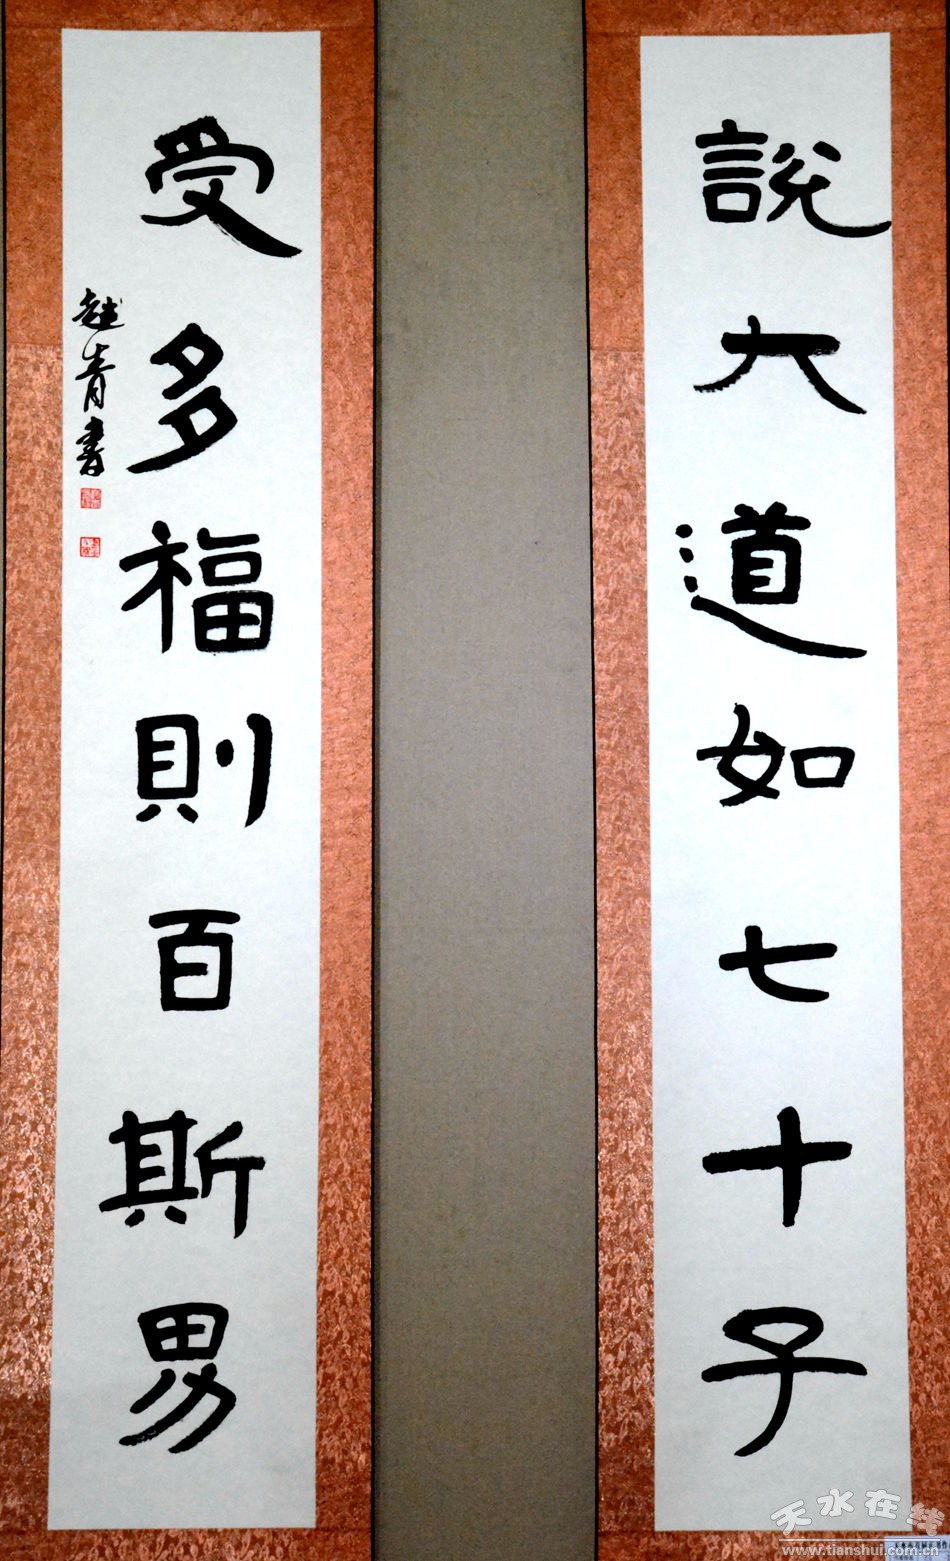 說大道如七十子
受多福則百斯男
趙青書
天水在线
www.tianshui.com.cn